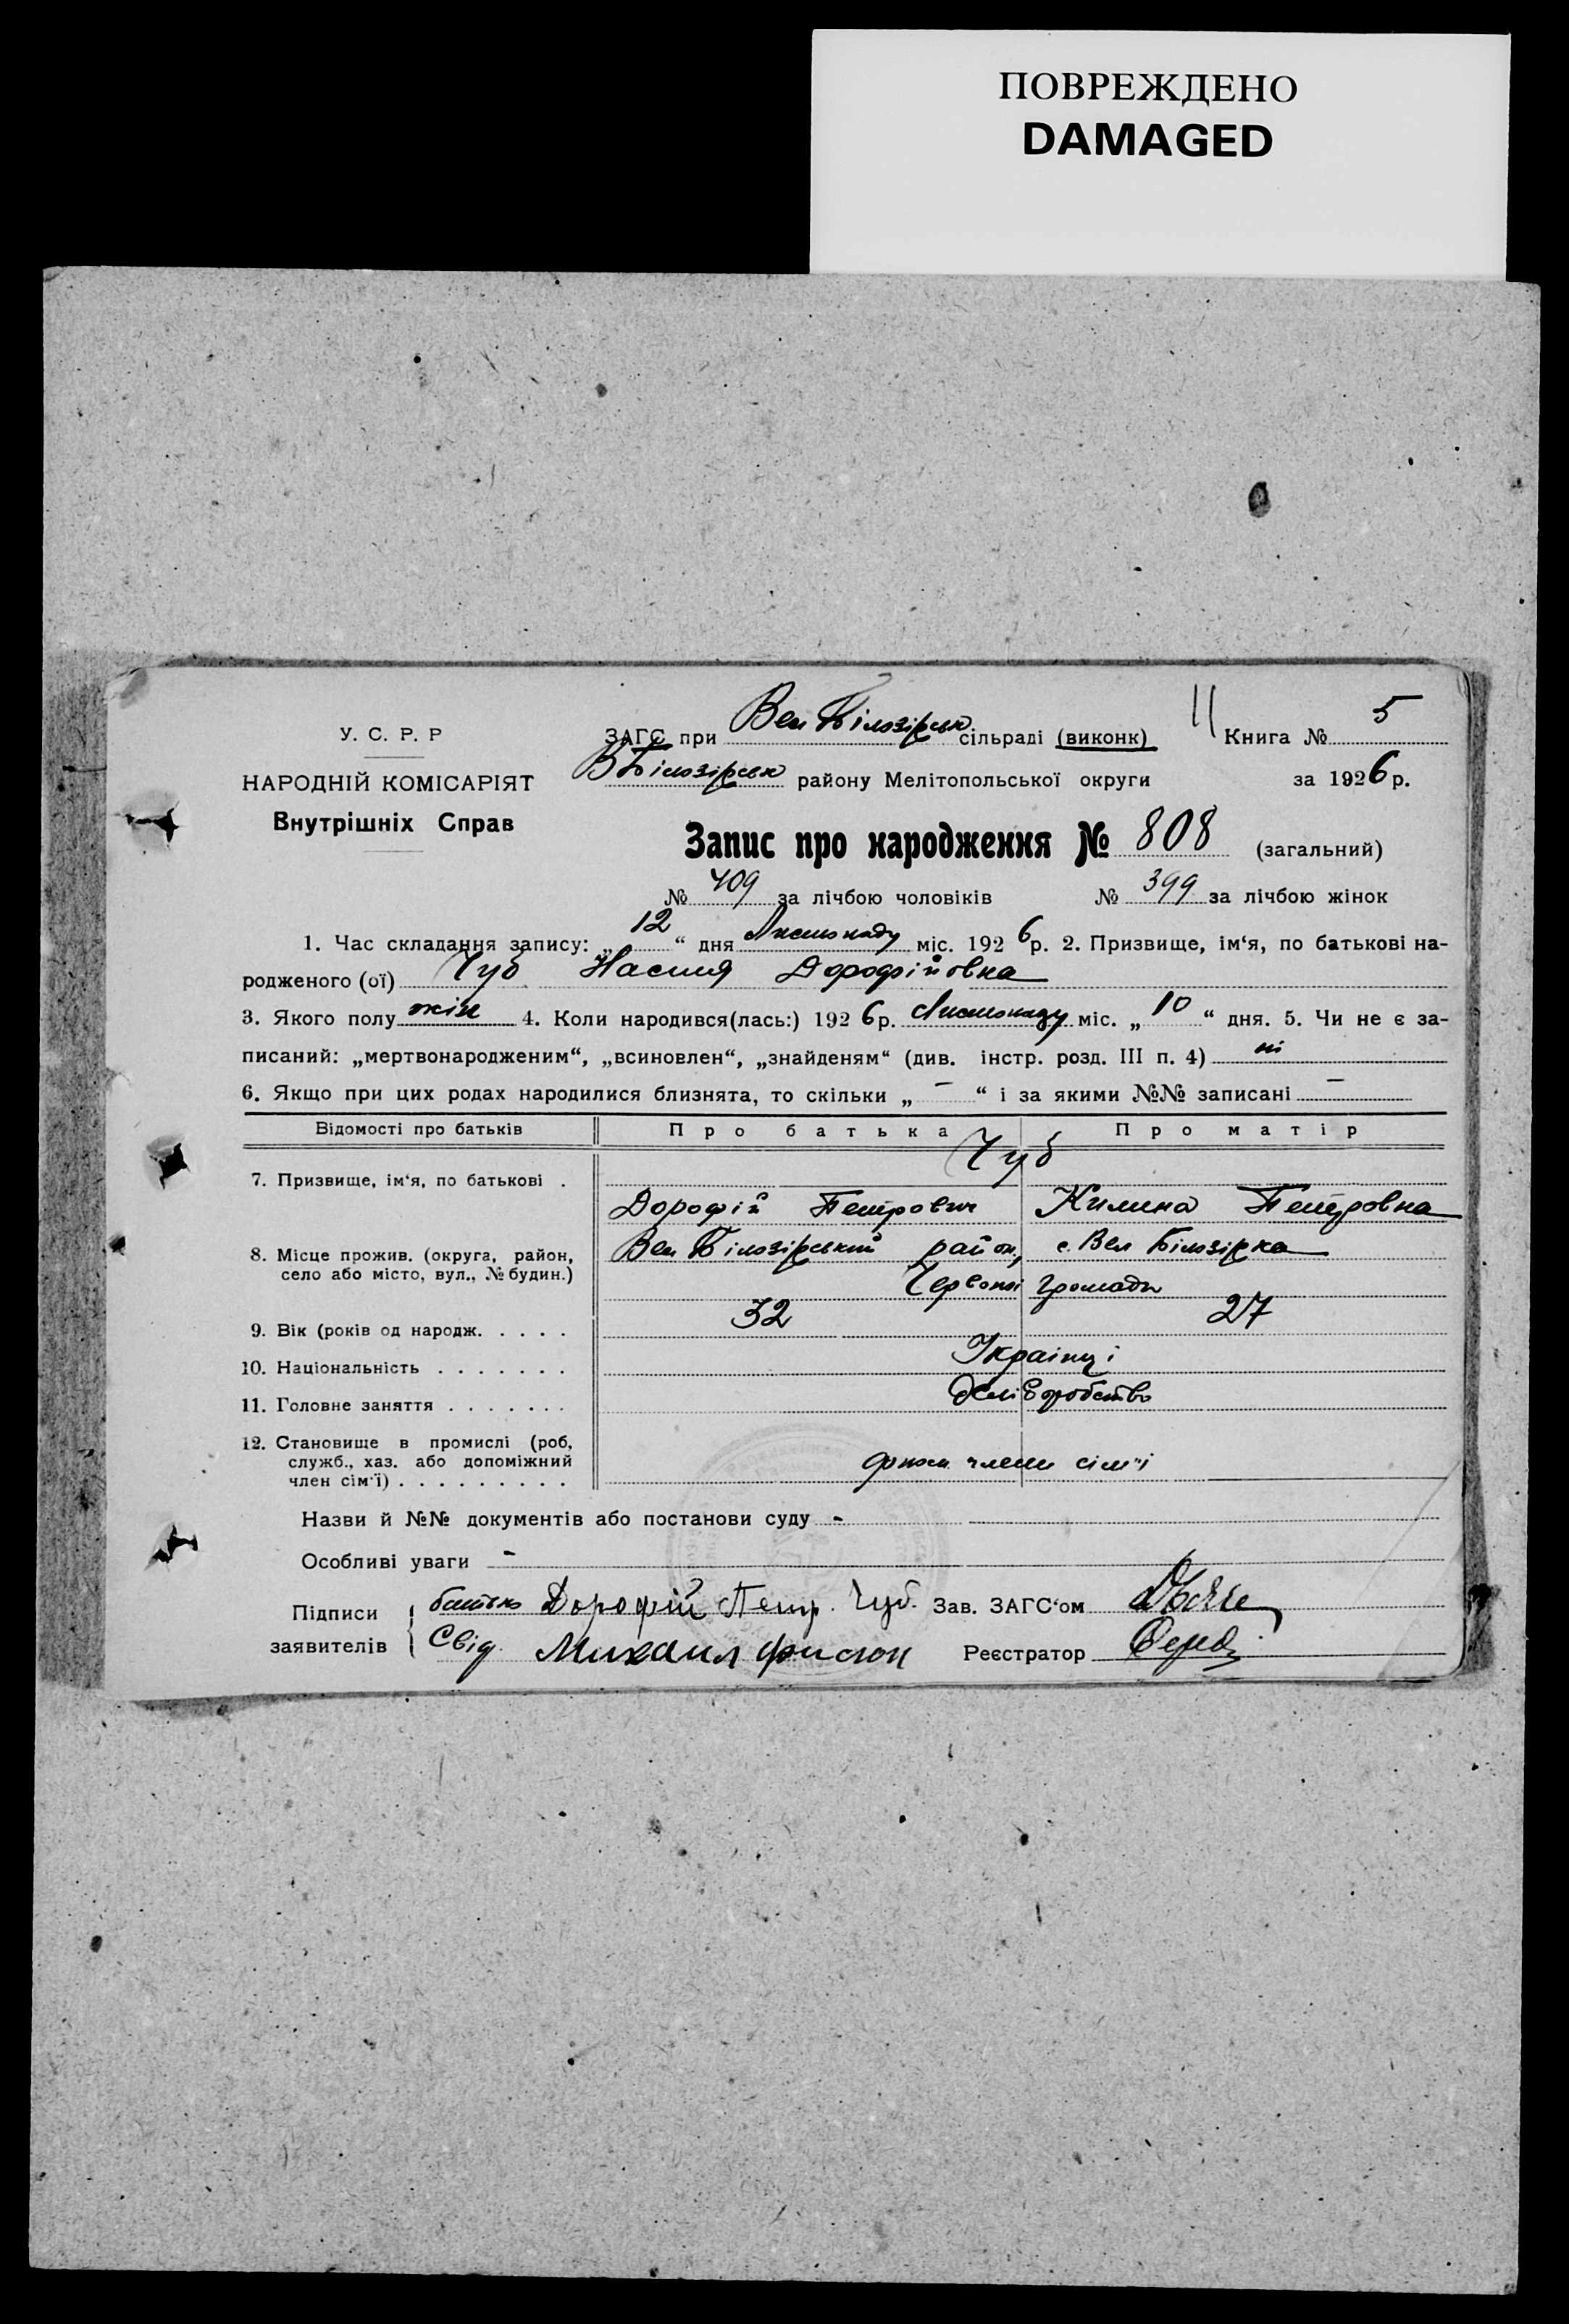 ПОВРЕЖДЕНО
DAMAGED
У. С. Р. Р
НАРОДНІЙ КОМІСАРІЯТ
Внутрішніх Справ
ЗАГС при Вел Білозірськ сільраді (виконк) Книга № 5
В Білозірськ району Мелітопольської округи за 1926 р.
Запис про народження № 808 (загальний)
№ 409 за лічбою чоловіків № 399 за лічбою жінок
1. Час складання запису: „12“ дня Листопаду міс. 1926 р. 2. Призвище, ім‘я, по батькові на-
родженого (ої) Чуб Настя Дорофійовна
3. Якого полу жін 4. Коли народився(лась:) 1926 р. Листопаду міс. „10“ дня. 5. Чи не є за-
писаний: „мертвонародженим“, „всиновлен“, „знайденям“ (див. інстр. розд. III п. 4) ні
6. Якщо при цих родах народилися близнята, то скільки „ — “ і за якими №№ записані —
Відомості про батьків Про батька Про матір
Чуб
7. Призвище, ім‘я, по батькові .
Дорофій Петрович Килина Петровна
8. Місце прожив. (округа, район, Вел Білозірський район, с. Вел Білозірка
село або місто, вул., № будин.)
Червоної громади
9. Вік (років од народж. . . . . 32 27
10. Національність . . . . . . . Українці
11. Головне заняття . . . . . . . хліборобство
12. Становище в промислі (роб,
служб., хаз. або допоміжний члени сім'ї
член сім‘ї) . . . . . . . . .
Назви й №№ документів або постанови суду -
Особливі уваги -
Підписи батько Дорофій Петр. Чуб. Зав. ЗАГС‘ом
заявителів Свід. Михаил Реєстратор